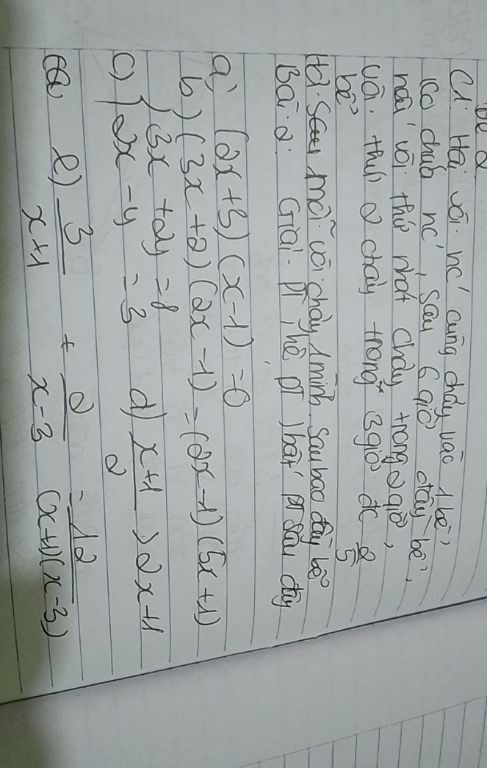 Đề 2
C1 Hai vòi nc' cùng chảy vào 1 bể
ko chứa nc', sau 6 giờ đầy bể,
nếu vòi thứ nhất chảy trong 2 giờ,
vòi thứ 2 chảy trong 3 giờ đc 2/5
bể
Hỏi sau mỗi vòi chảy 1 mình sau bao đầy bể
Bài 2: Giải pt, hệ pt, bất pt sau đây
a) (2x+3)(x-1)=0
b) (3x+2)(2x-1)=(2x-1)(5x+1)
c) { 3x+2y=8
2x-y=3 d) x+1/2 > 2x+1
e) 3/x+1 + 2/x-3 = 12/(x+1)(x-3)